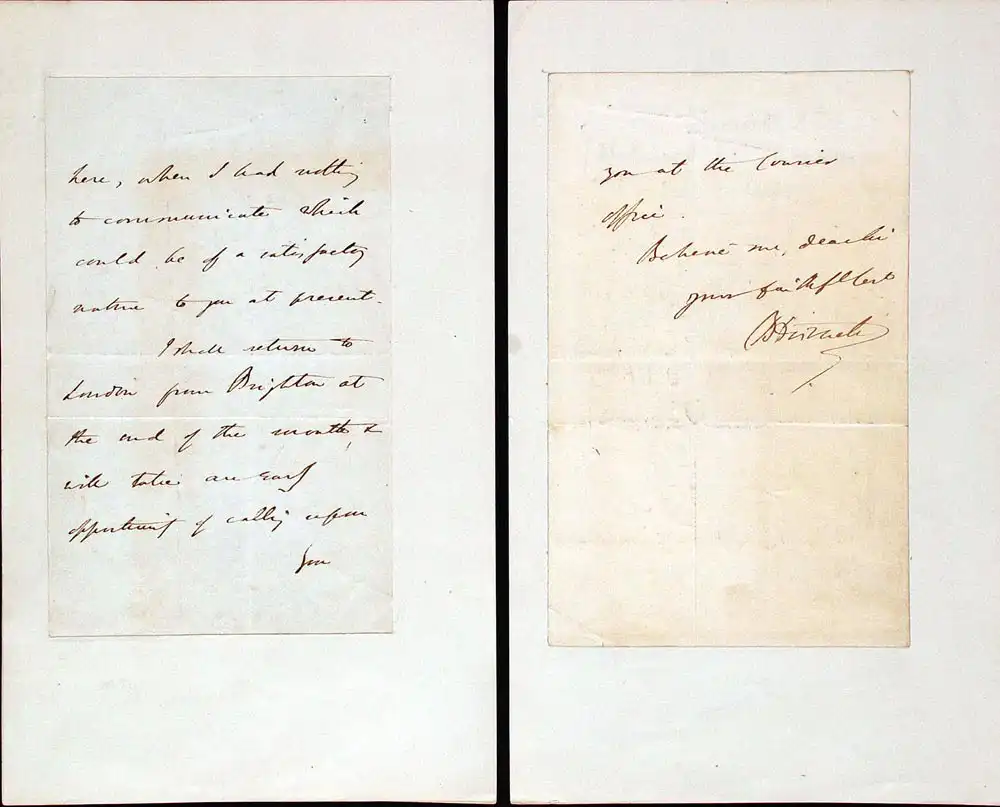 here, when I had nothing
to communicate which
could be of a satisfactory
nature to you at present.
I shall return to
London from Brighton at
the end of the month, &
will take an early
opportunity of calling upon
you
you at the Courier
office.
Believe me, dear Sir
your faithful Sert
BDisraeli